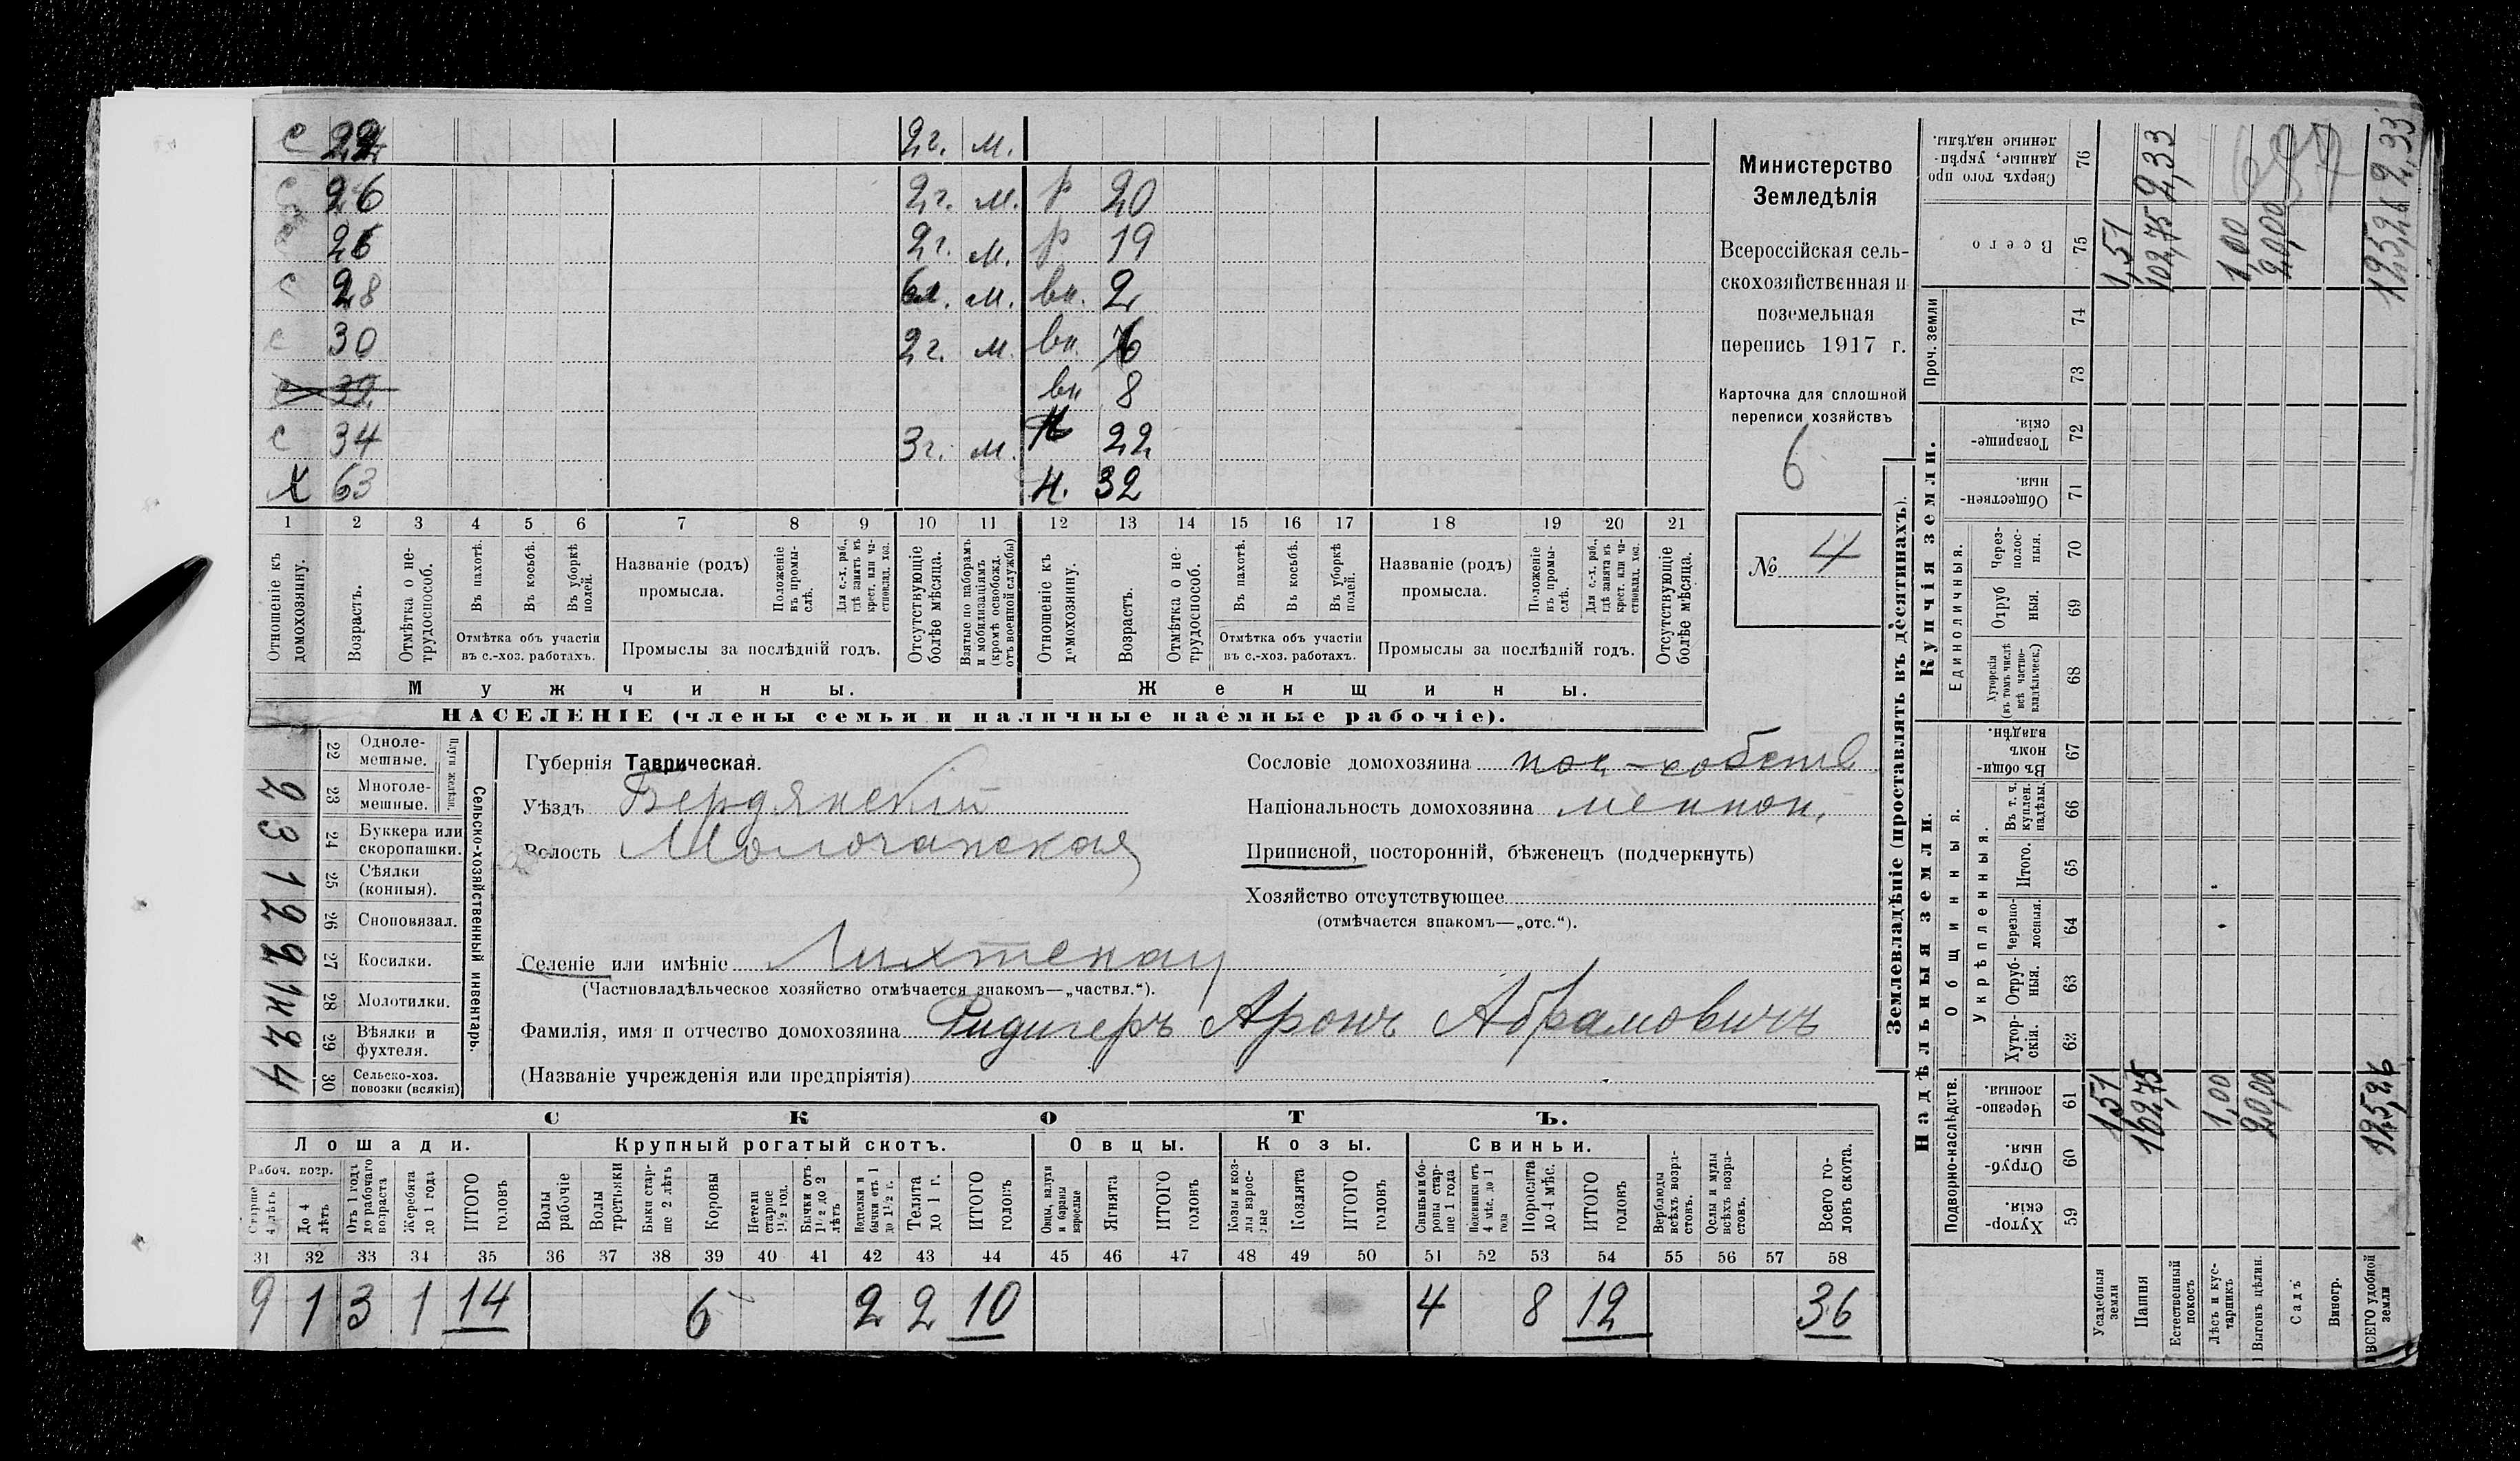 с 22 2 г. м.
с 26 2 г. м. р 20
26 2 г. м. р 19
с 28 м. вн. 2
с 30 2 г. м. вн. 6
вн 8
с 34 3 г. м. 22
Х 63 Н. 32
1 2 3 4 5 6 7 8 9 10 11 12 13 14 15 16 17 18 19 20 21
Отношеніе къ домохозяину.
Возрастъ.
Отмѣтка о не-
трудоспособ.
Въ пахотѣ.
Въ косьбѣ.
Въ уборкѣ
полей.
Отмѣтка объ участіи
въ с.-хоз. работахъ.
Названіе (родъ)
промысла.
Положеніе
въ промы-
слѣ.
Для с.-х. раб.,
гдѣ занятъ въ
крест. или ча-
стновлад. хоз.
Промыслы за послѣдній годъ.
Отсутствующіе
болѣе мѣсяца.
Взятые по наборамъ
и мобилизаціямъ
(кромѣ освобожд.
отъ военной службы)
Отношеніе къ
домохозяину.
Возрастъ.
Отмѣтка о не-
трудоспособ.
Въ пахотѣ.
Въ косьбѣ.
Въ уборкѣ
полей.
Отмѣтка объ участіи
въ с.-хоз. работахъ.
Названіе (родъ)
промысла.
Положеніе
въ промы-
слѣ.
Для с.-х. раб.,
гдѣ занята въ
крест. или ча-
стновлад. хоз.
Промыслы за послѣдній годъ.
Отсутствующіе
болѣе мѣсяца.
Мужчины.
Женщины.
НАСЕЛЕНІЕ (члены семьи и наличные наемные рабочіе).
Министерство
Земледѣлія
Всероссійская сель-
скохозяйственная и
поземельная
перепись 1917 г.
Карточка для сплошной
переписи хозяйствъ
6
№ 4
Плуги желѣзн.
22 Одноле-
мешные.
2 23 Многоле-
мешные.
3 24 Буккера или
скоропашки.
1 25 Сѣялки
(конныя).
2 26 Сноповязал.
2 27 Косилки.
28 Молотилки.
2 29 Вѣялки и
фухтеля.
4 30 Сельско-хоз.
повозки (всякія)
Сельско-хозяйственный инвентарь.
Губернія Таврическая.
Уѣздъ Бердянскій
Волость Молочанская
Селеніе или имѣніе Лихтенау
(Частновладѣльческое хозяйство отмѣчается знакомъ—„частвл.“).
Фамилія, имя и отчество домохозяина Ридигеръ Аронъ Абрамовичъ
(Названіе учрежденія или предпріятія)
Сословіе домохозяина пос.-собств
Національность домохозяина меннон.
Приписной, посторонній, бѣженецъ (подчеркнуть)
Хозяйство отсутствующее
(отмѣчается знакомъ—„отс.“).
СКОТЪ.
Лошади. Крупный рогатый скотъ. Овцы. Козы. Свиньи.
Рабоч. возр.
Старше
4 лѣтъ
До 4
лѣтъ
Отъ 1 года
до рабочаго
возраста
Жеребята
до 1 года
ИТОГО
головъ
Волы
рабочіе
Волы
третьяки
Быки стар-
ше 2 лѣтъ
Коровы
Нетели
старше
1½ год.
Бычки отъ
1½ до 2
лѣтъ
Водтелки и
бычки отъ 1
до 1½ г.
Телята
до 1 г.
ИТОГО
головъ
Овцы, валухи
и бараны
взрослые
Ягнята
ИТОГО
головъ
Козы и коз-
лы взрос-
лые
Козлята
ИТОГО
головъ
Свиньи и бо-
ровы стар-
ше 1 года
Подсвинки отъ
4 мѣс. до 1
года
Поросята
до 4 мѣс.
ИТОГО
головъ
Верблюды
всѣхъ возра-
стовъ.
Ослы и мулы
всѣхъ возра-
стовъ.
Всего го-
ловъ скота.
31 32 33 34 35 36 37 38 39 40 41 42 43 44 45 46 47 48 49 50 51 52 53 54 55 56 57 58
9 1 3 1 14 6 2 2 10 4 8 12 36
Землевладѣніе (проставлять въ десятинахъ).
Надѣльныя земли.
Купчія земли.
Проч. земли
Подворно-наслѣдств.
Общинныя.
Укрѣпленныя.
Единоличныя.
Хутор-
скія.
Отруб-
ныя.
Черезпо-
лосныя.
Хутор-
скія.
Отруб-
ныя.
Черезпо-
лосныя.
Итого.
Въ т. ч.
куплен.
надѣлы.
Въ общи-
номъ
владѣн.
Хуторскія
(въ томъ числѣ
всѣ частно-
владѣльческ.)
Отруб
ныя.
Через-
полос-
ныя.
Обществен-
ныя.
Товарище-
скія.
Всего
Сверхъ того про
данные, укрѣп-
ленные надѣлы.
59 60 61 62 63 64 65 66 67 68 69 70 71 72 73 74 75 76
Усадебныя
земли 1,51 1,51
Пашня 102,75 102,75 2,33
Естественный
покосъ
Лѣсъ и кус-
тарникъ 1,00 1,00
Выгонъ цѣлин. 20,00 20,00
Садъ
Виногр.
ВСЕГО удобной
земли 125,26 125,26 2,33